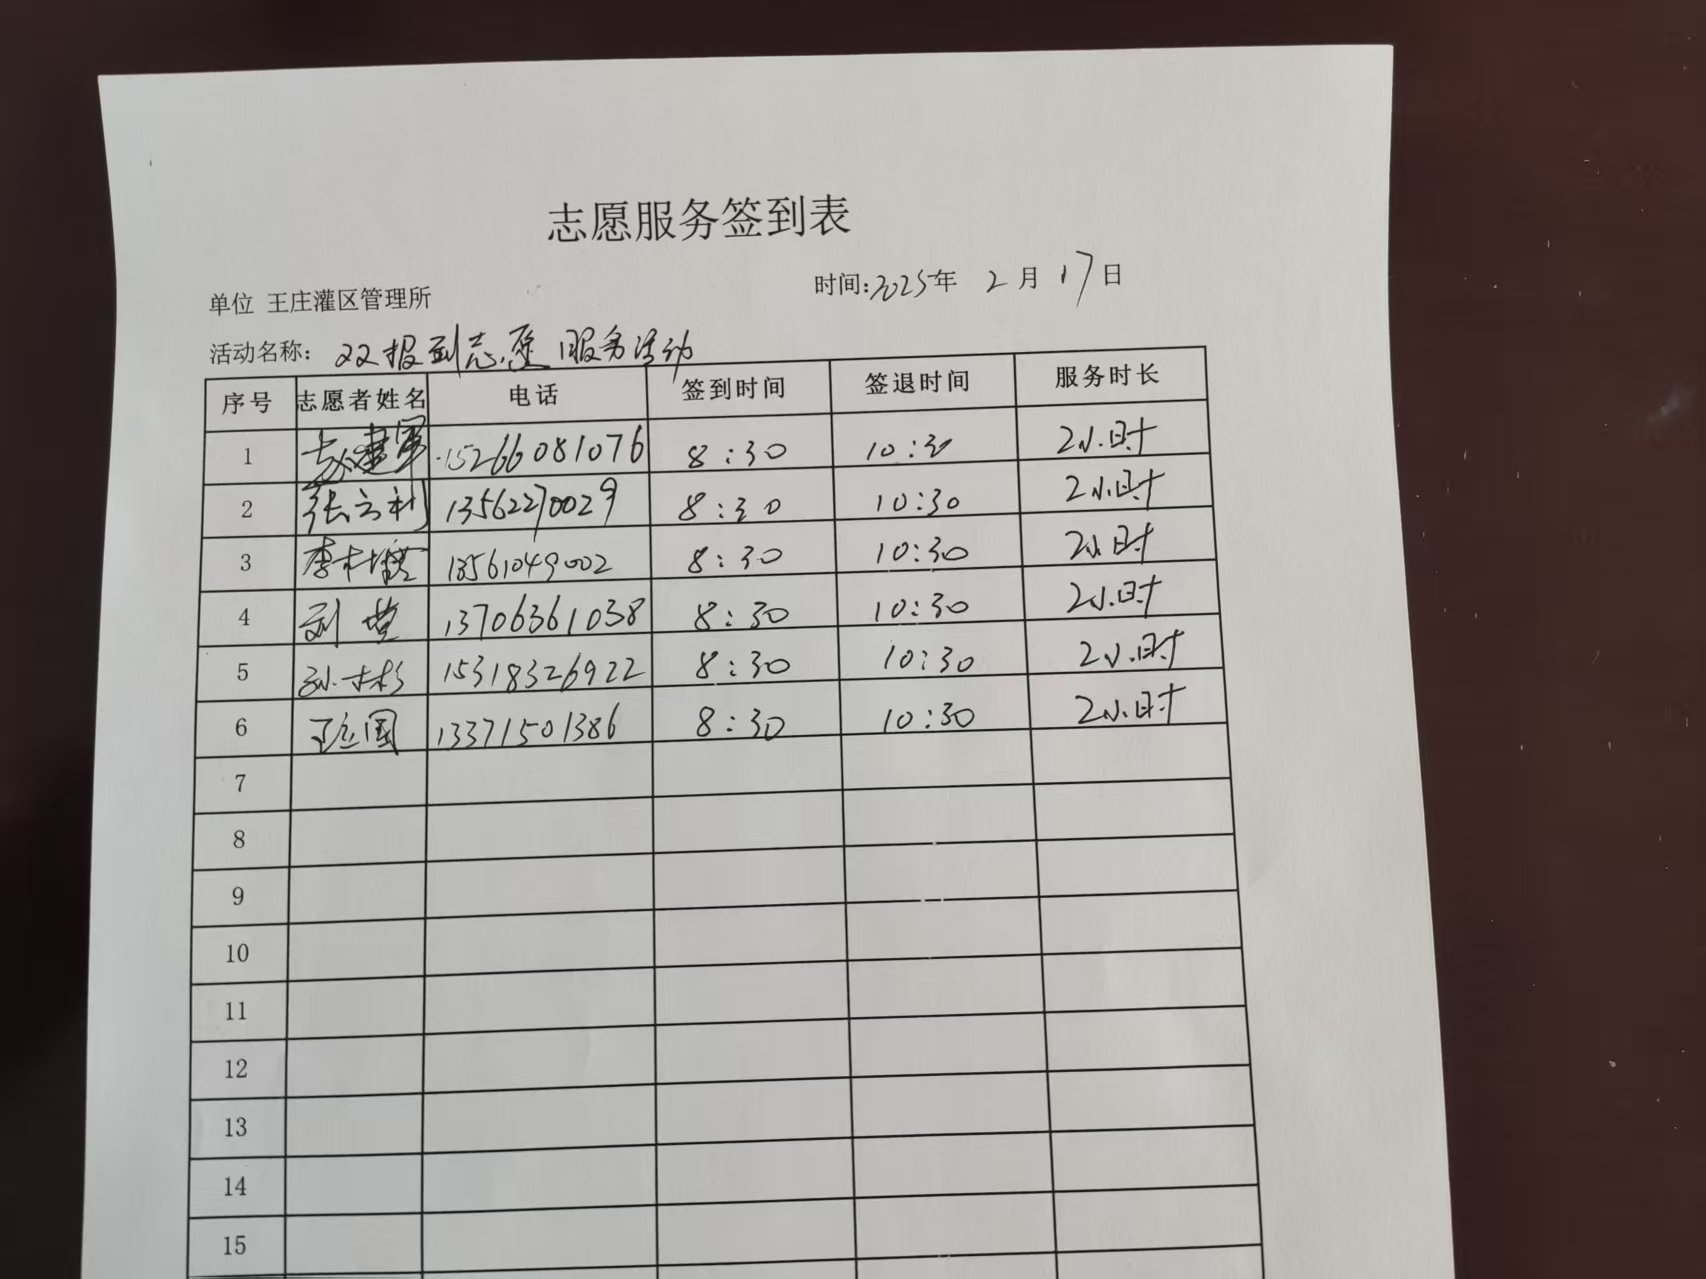 志愿服务签到表
单位 王庄灌区管理所 时间:2025年 2月17日
活动名称: 双报到志愿服务活动
序号 志愿者姓名 电话 签到时间 签退时间 服务时长
1 赵建军 15266081076 8:30 10:30 2小时
2 张立利 13562270029 8:30 10:30 2小时
3 李 13561049002 8:30 10:30 2小时
4 刘 13706361038 8:30 10:30 2小时
5 孙 15318326922 8:30 10:30 2小时
6 国 13371501386 8:30 10:30 2小时
7
8
9
10
11
12
13
14
15